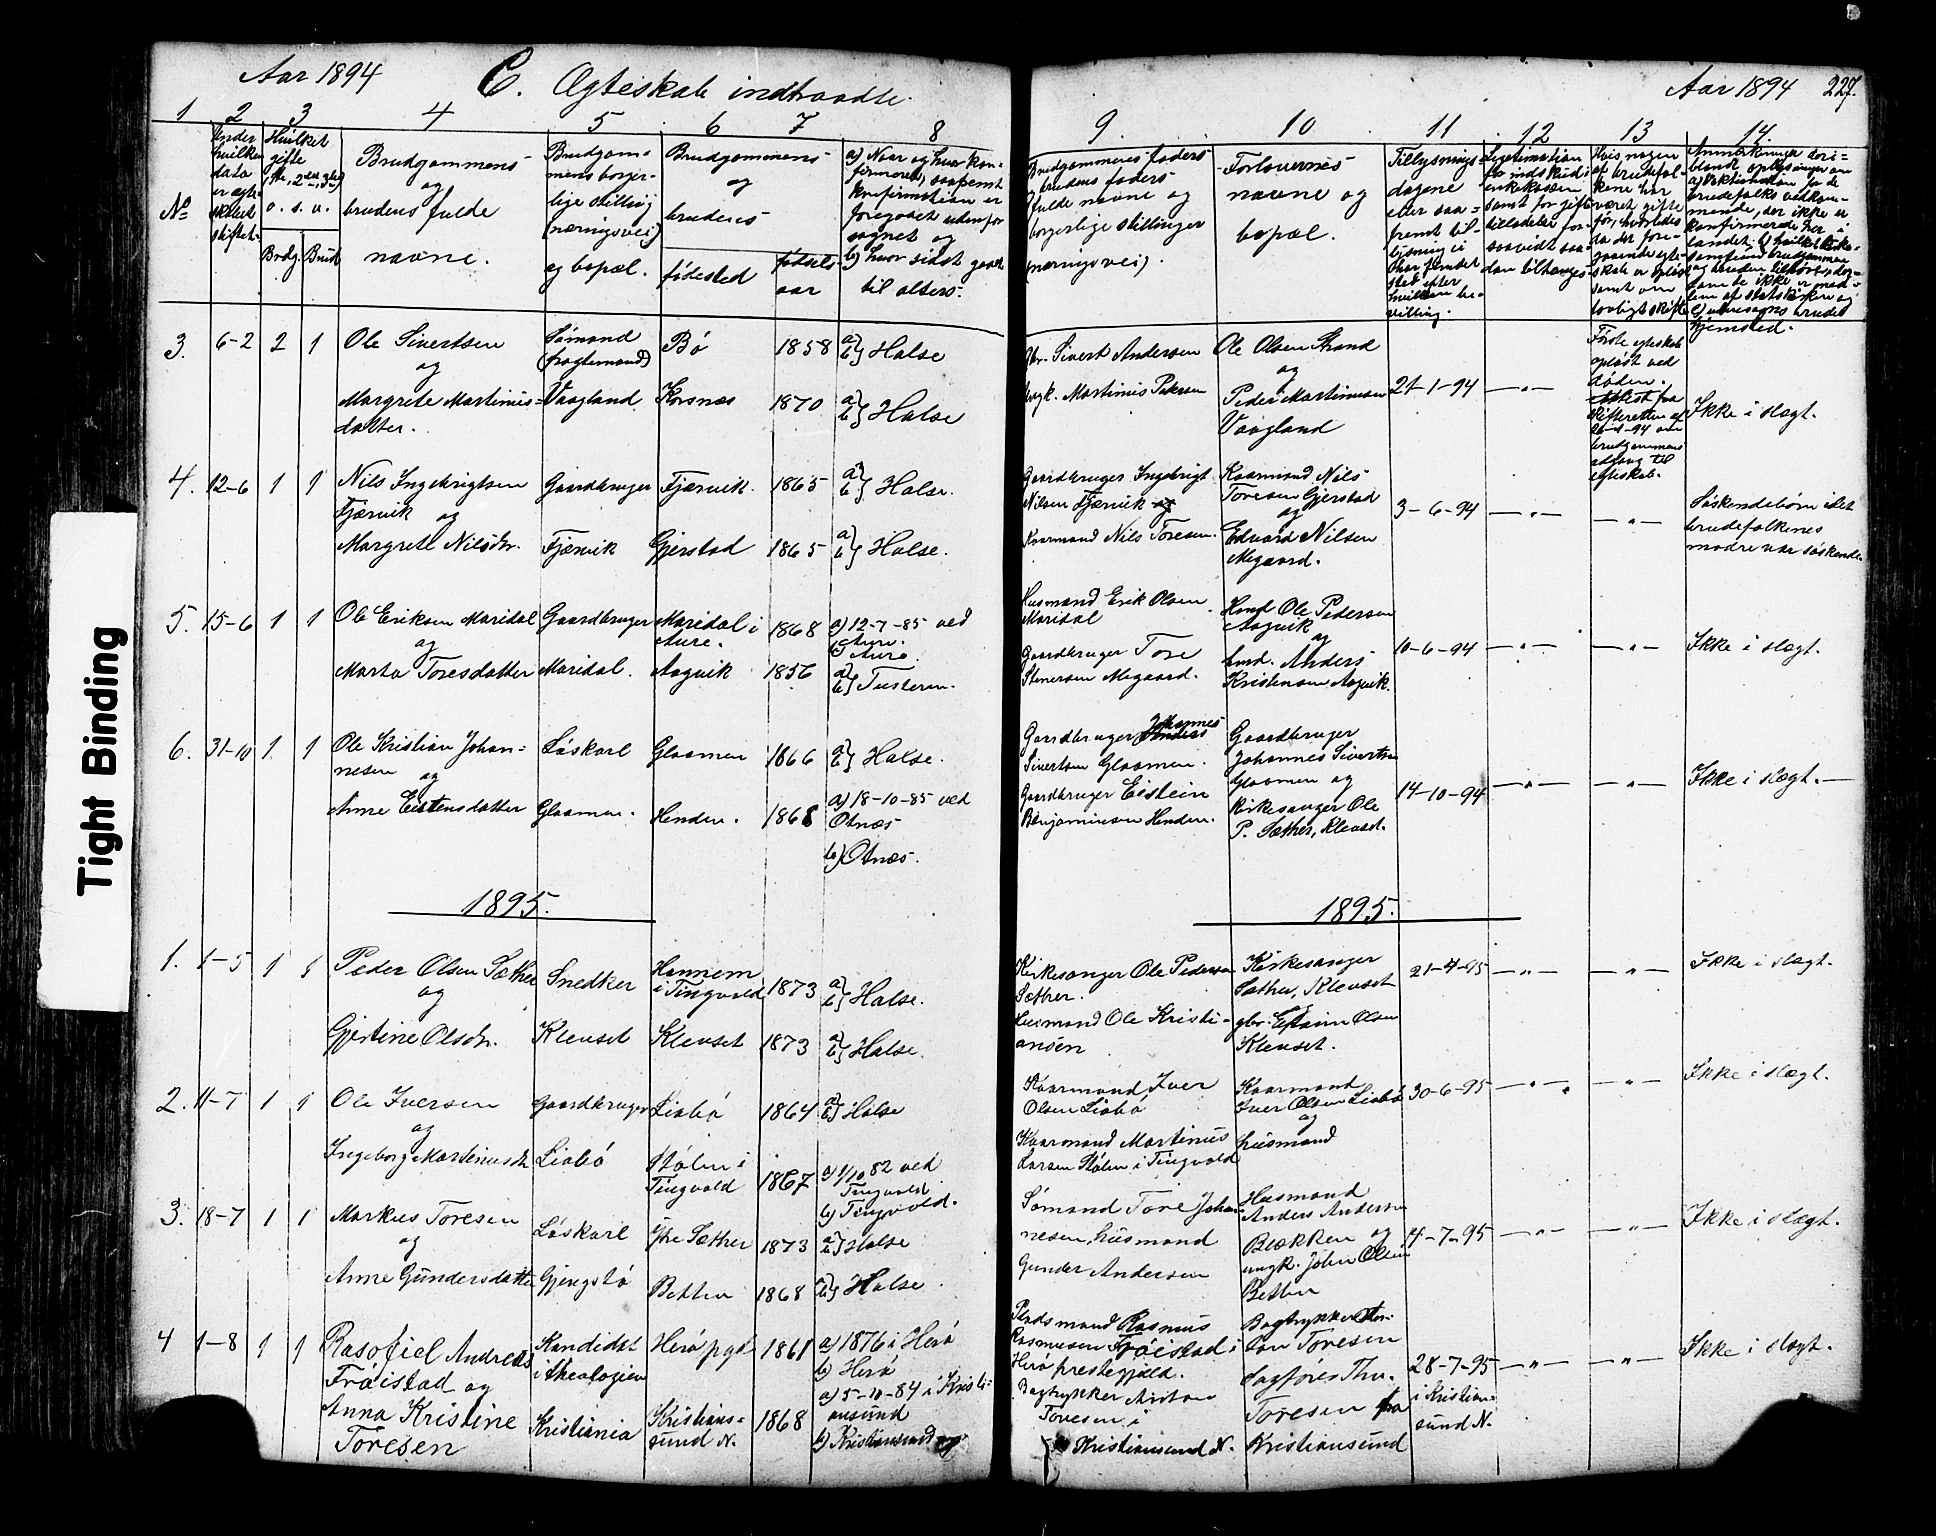 Aar 1894
C. Ægteskab indtraadte.
Aar 1894
227.
1 2 3 4 5 6 7 8
9. 10 11 12 13 14.
No
Under hvilken dato er ægteskabet stiftet.
Hvilket gifte
o. s. v.
Brdg. Brud
Brudgommens
og
brudens fulde
navne.
Brudgom-
mens borger-
lige stilling
(næringsvei)
og bopæl.
Brudgommens
og
brudens
fødested
fødsels-
aar
a) Naar og hvor kon-
firmeret, saafremt
konfirmation er
foregaaet udenfor
sognet og
b) hvor sidst gaaet
til alters.
Brudgommens faders
og brudens faders
fulde navne og
borgerlige stillinger
(næringsvei).
Forlovernes
navne og
bopæl.
Tillysnings-
dagene
eller saa-
fremt til-
lysning ei
har fundet
sted efter
hvilken be-
villing.
Hvis nogen
af brudefol-
kene har
været gifte
før, hvorledes
da det fore-
gaaende egte-
skab er opløst
samt om
lovligt skifte
hjemsted.
3. 6-2 2 1
Ole Sivertsen
og
Margrete Martinus-
datter.
Sømand
(fragtemand)
Vaagland
Bø
Korsnæs
1858
1870
a) b) Halse
a) b) Halse
gbr. Sivert Andersen
Ole Olsen Strand
og
Peder Martinusen
Vaagland
21-1-94
— " —
Første egteskab
opløst ved
døden.
Attest fra
skifteretten af
brudgommens
adgang til
egteskab.
Ikke i slægt.
4. 12-6 1 1
Nils Ingebrigtsen
Fjærvik og
Margrete Nilsdtr.
Gaardbruger
Fjærvik
Fjærvik.
Gjerstad
1865
1865
a) b) Halse.
a) b) Halse.
Gaardbruger Ingebrigt
Nilsen Fjærvik og
Kaarmand Nils Toresen.
Kaarmand Nils
Toresen Gjerstad
og
Edvard Nilsen
Megaard.
3-6-94
— " —
— " —
Søskendebørn idet
brudefolkenes
mødre var søskende.
5. 15-6 1 1
Ole Eriksen Maridal
og
Marta Toresdatter
Gaardbruger
Maridal.
Maridal i
Aure.
Aagvik
1868
1856
a) 12-7-85 ved
Aure.
b) Aure
a) b) Tusteren.
Husmand Erik Olsen
Maridal
Gaardbruger Tore
Stenersen Megaard.
Ole Pedersen
Aagvik
og
Anders
Kristensen Aagvik.
10-6-94
— " —
— " —
Ikke i slægt.
6. 31-10 1 1
Ole Kristian Johan-
nesen
og
Anne Eistensdatter
Løskarl
Glaamen.
Glaamen
Henden.
1866
1868
a) b) Halse.
a) 18-10-85 ved
Otnæs
b) Otnæs.
Johannes
Gaardbruger Anders
Sivertsen Glaamen.
Gaardbruger Eistein
Benjaminsen Henden.
Gaardbruger
Johannes Sivertsen
Glaamen og
Kirkesanger Ole
P. Sæther, Klevset.
14-10-94
— " —
— " —
Ikke i slægt. —
1895.
1895.
1. 1-5 1 1
Peder Olsen Sæther
og
Gjertine Olsdtr.
Snedker
Klevset
Hannem
i Tingvold
Klevset
1873
1873
a) b) Halse.
a) b) Halse.
Kirkesanger Ole Pedersen
Sæther.
Husmand Ole Kristi-
ansen
Kirkesanger
Sæther, Klevset
gbr. Efraim Olsen
Klevset.
21-4-95
— " —
— " —
Ikke i slægt.
2. 11-7 1 1
Ole Iversen
og
Ingeborg Martinusdtr.
Gaardbruger
Liabø
Liabø
Stølen i
Tingvold
1864
1867
a) b) Halse
a) 1/10 82 ved
Tingvold
b) Tingvold.
Kaarmand Iver
Olsen Liabø
Kaarmand Martinus
Larsen Stølen i Tingvold
Kaarmand
Iver Olsen Liabø
og
husmand
30-6-95
— " —
— " —
Ikke i slægt.
3. 18-7 1 1
Markus Toresen
og
Anne Gundersdatter
Løskarl
Gjengstø
Ytre Sæther
Betten
1873
1868
a) b) Halse
a) b) Halse.
Sømand Tore Johan
nesen, husmand
Gunder Andersen
Husmand
Anders Andersen
Bækken og
ungk. John Olsen
Betten
14-7-95
— " —
— " —
Ikke i slægt.
4 1-8 1 1
Rasofiel Andreas
Frøistad og
Anna Kristine
Toresen
Kandidat
i theologien
Kristiania
Herø pgd.
Kristians-
sund N.
1861
1868
a) 1876 i Herø
b) Herø
a) 5-10-84 i Kristi-
ansund
b) Kristiansund
Pladsmand Rasmus
Rasmussen Frøistad i
Herø prestegjæld.
Bogtrykker Anton
Toresen i
Kristiansund N.
Bogtrykker An-
ton Toresen
Sagfører Thv.
Toresen fra
Kristiansund
28-7-95
i Kristian-
sund N.
— " —
— " —
Ikke i slægt.
Tight Binding